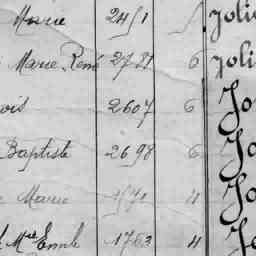 Marie 24/1 Joli
Marie René 27 6 Joli
ois 2607 6 Jo
Baptiste 2698 6 Jo
Marie 4 Jo
Mce Emile 1763 4 Jo